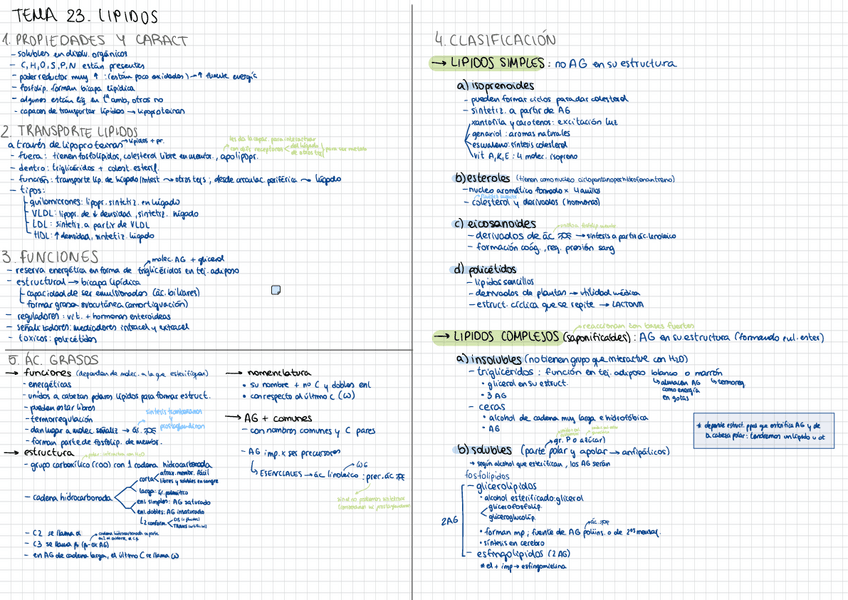 TEMA 23. LIPIDOS
1. PROPIEDADES Y CARACT
- solubles en disolv. orgánicos
- C, H, O, S, P, N están presentes
- poder reductor muy ↑ : (están poco oxidados) → ↑ fuente energía
- fosfolíp. forman bicapa lipídica
- algunos están líq. en tª amb, otros no
- capaces de transportar lípidos → lipoproteínas
2. TRANSPORTE LÍPIDOS
a través de lipoproteínas → lípidos + pr.
- fuera: tienen fosfolípidos, colesterol libre en membr, apolipopr.
- dentro: triglicéridos + colest. esterif.
- función: transporte líp. de hígado/intest → otros tejs, desde circulac. periférica → hígado
- tipos:
quilomicrones: lipopr. sintetiz. en hígado
VLDL: lipopr. de ↓ densidad, sintetiz. hígado
LDL: sintetiz a partir de VLDL
HDL: ↑ densidad, sintetiz. hígado
3. FUNCIONES
molec. AG + glicerol
- reserva energética en forma de triglicéridos en tej. adiposo
- estructural → bicapa lipídica
- capacidad de ser emulsionados (ác. biliares)
formar grasa subcutánea (amortiguación)
- reguladores: vit. + hormonas esteroideas
- señalizadores: mediadores intracel y extracel
- tóxicos: policétidos
5. ÁC. GRASOS
→ funciones (dependen de molec. a la que esterifiquen)
- energéticas
- unidos a cabezas polares lípidos para formar estruct.
- pueden estar libres
- termorregulación
- dan lugar a molec señaliz → ác.
síntesis tromboxanos y prostaglandinas
- forman parte de fosfolíp. de membr.
→ estructura
- grupo carboxílico (COO) con 1 cadena hidrocarbonada
- cadena hidrocarbonada
corta: atrav. membr. fácil
libres y solubles en sangre
larga: ác. palmítico
enl. simples: AG saturado
enl. dobles: AG insaturado
- C2 se llama α
- C3 se llama β (β-ox AG)
- en AG de cadena larga, el último C se llama ω
→ nomenclatura
• su nombre + nº C y dobles enl
• con respecto al último C (ω)
→ AG + comunes
- con nombres comunes y C pares
- AG imp. x ser precursores
↳ ESENCIALES → ác linoleico: prec. ác
ω6
4. CLASIFICACIÓN
→ LIPIDOS SIMPLES : no AG en su estructura
a) isoprenoides
- pueden formar ciclos para dar colesterol
- sintetiz. a partir de AG
xantofila y carotenos: excitación luz
geraniol: aromas naturales
escualeno: síntesis colesterol
vit A, K, E: 4 molec. isopreno
b) esteroles (tienen como núcleo ciclopentanoperhidrofenantreno)
- núcleo aromático formado x 4 anillos
- colesterol y derivados (hormonas)
c) eicosanoides
- derivados de ác. → síntesis a partir ác. linoleico
- formación coág, reg. presión sang
d) policétidos
- lípidos sencillos
- derivados de plantas → utilidad médica
- estruct. cíclica que se repite → LACTONA
reaccionan con bases fuertes
→ LIPIDOS COMPLEJOS (saponificables) : AG en su estructura (formando enl. ester)
a) insolubles (no tienen grupo que interactúe con H2O)
- triglicéridos: función en tej. adiposo blanco o marrón
↳ almacén AG como energía en gotas
↳ termorreg
• glicerol en su estruct.
• 3 AG
- ceras
• alcohol de cadena muy larga e hidrofóbica
• AG
gr. P o azúcar)
b) solubles (parte polar y apolar → anfipáticos)
→ según alcohol que esterifican, los AG serán
fosfolípidos
2AG
- glicerolípidos
• alcohol esterificado: glicerol
glicerofosfolíp.
gliceroglucolíp.
• forman mp; fuente de AG poliins. o de 2os mensaj.
• síntesis en cerebro
- esfingolípidos (2 AG)
* el + imp → esfingomielina
* depende estruct. ppal que esterifica AG y de la cabeza polar: tendremos un lípido u ot